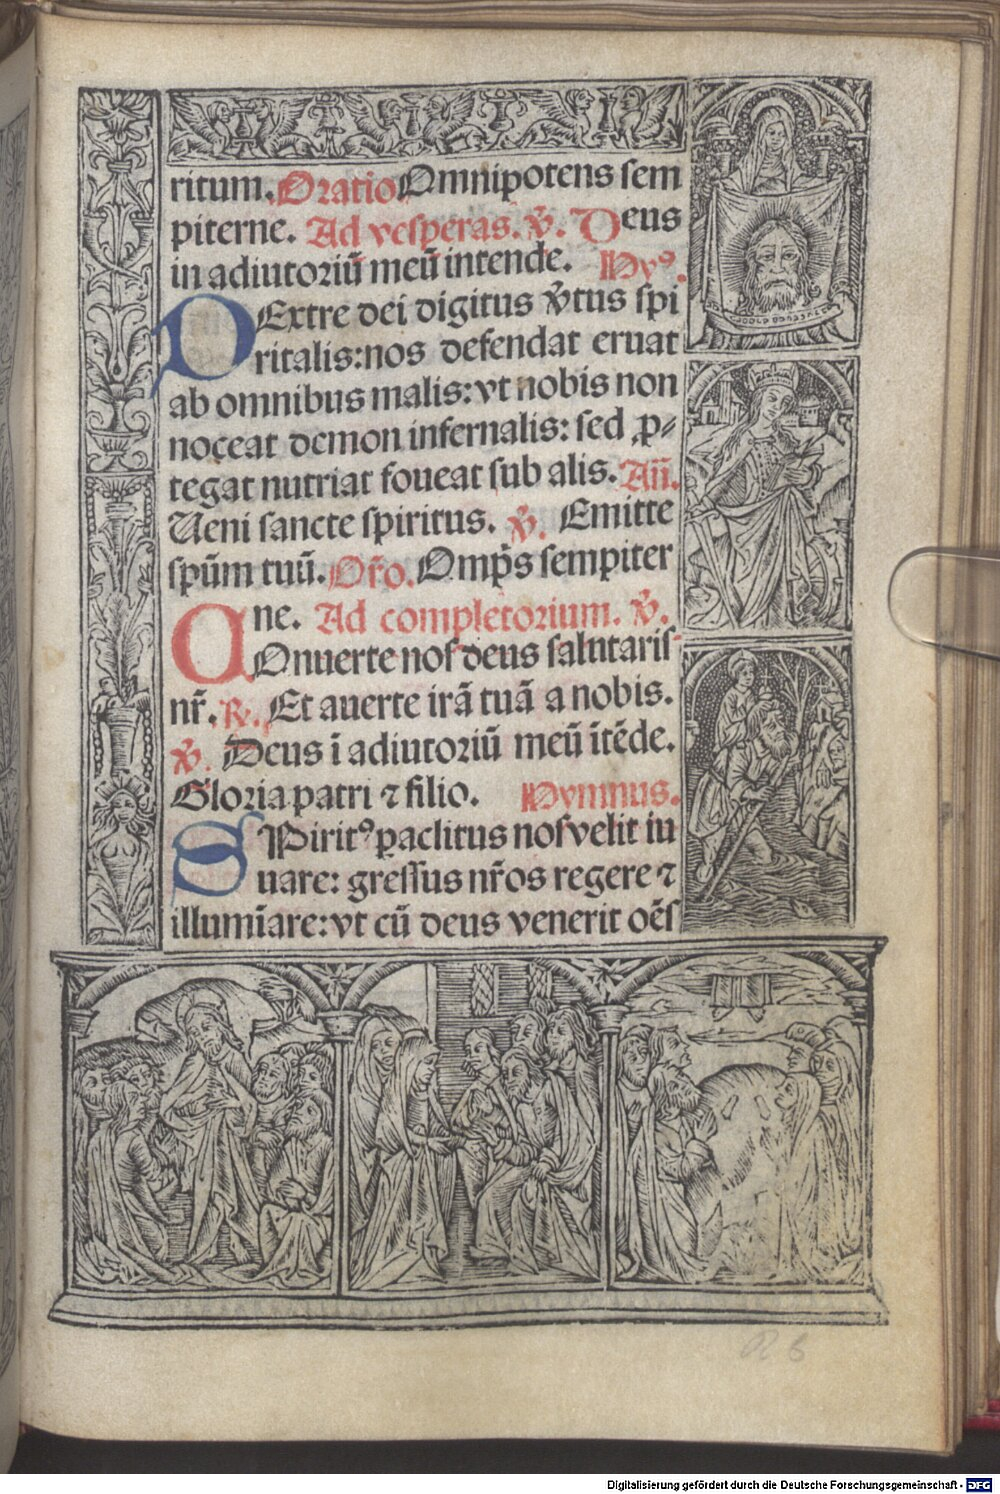 ritum. Oratio Omnipotens sem
piterne. Ad vesperas. v̊. Deus
in adiutoriū meū intende. Hyꝰ.
DExtre dei digitus v̊tus spi
ritalis: nos defendat eruat
ab omnibus malis: vt nobis non
noceat demon infernalis: sed ꝓ⸗
tegat nutriat foueat sub alis. Añ.
Ueni sancte spiritus. v̊. Emitte
spūm tuū. Or̄o. Omp̄s sempiter
ne. Ad completorium. v̊.
COnuerte nos deus salutaris
nr̄. R. Et auerte irā tuā a nobis.
v̊. Deus ī adiutoriū meū ītēde.
Gloria patri ⁊ filio. Hymnus.
SPiritꝰ paclitus nos velit iu
uare: gressus nr̄os regere ⁊
illumīare: vt cū deus venerit oēs
R 6
Digitalisierung gefördert durch die Deutsche Forschungsgemeinschaft - DFG